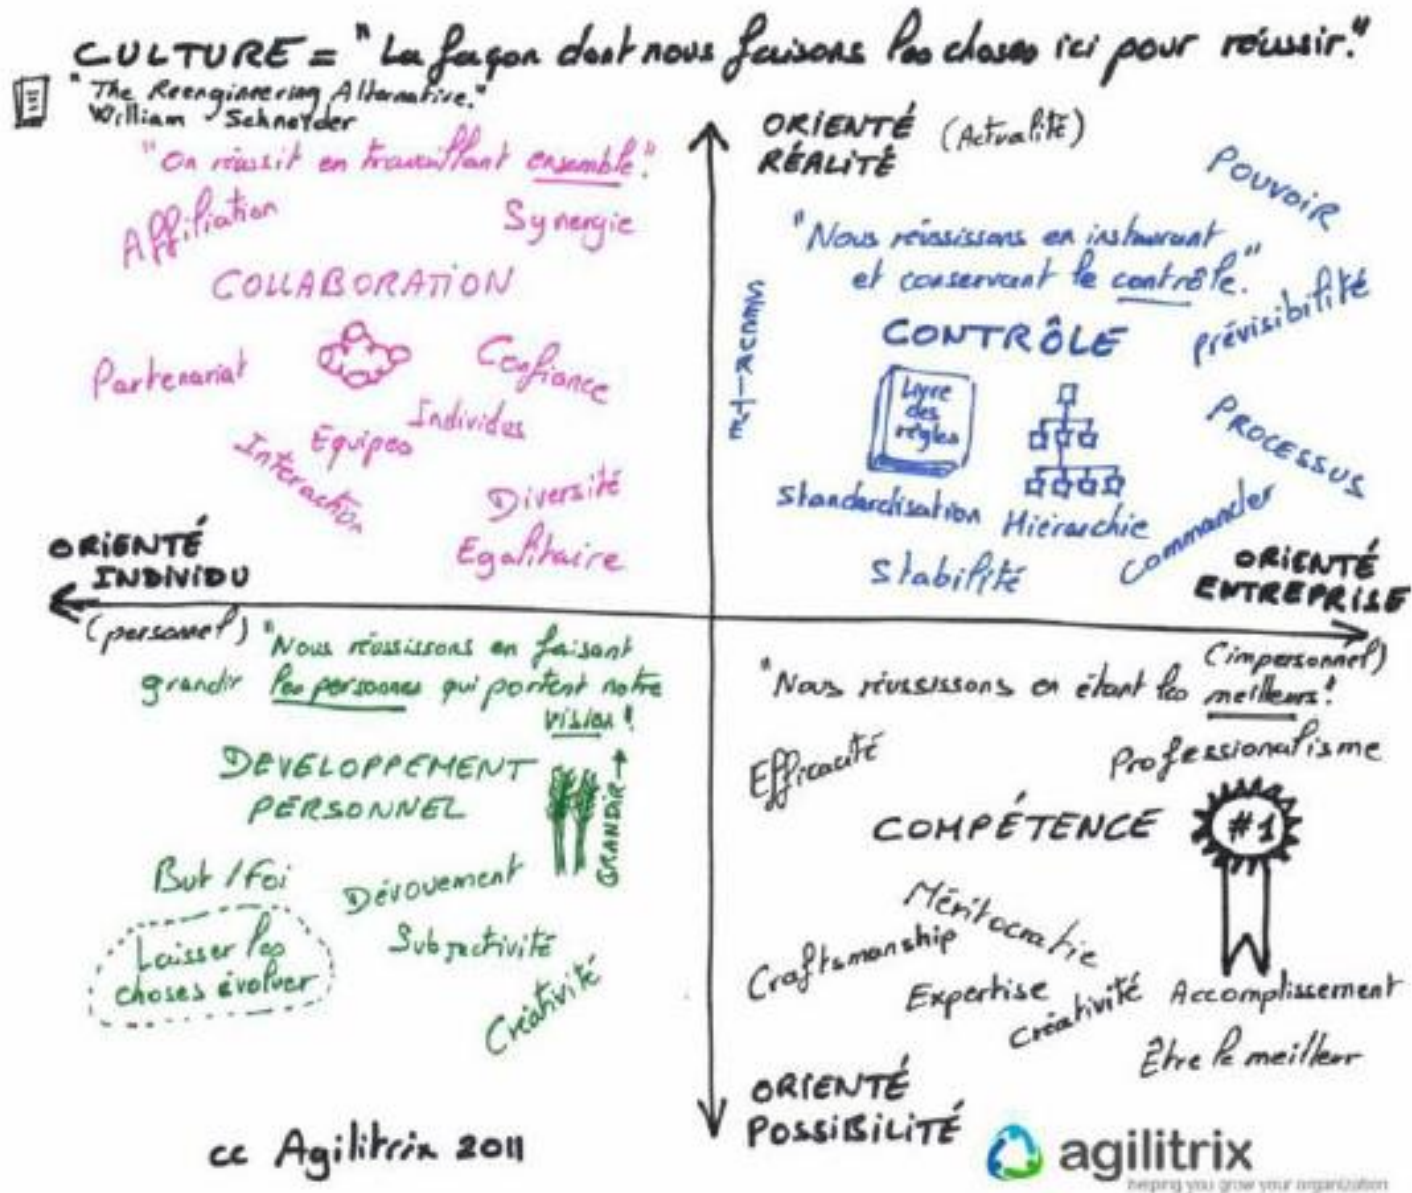 CULTURE = "La façon dont nous faisons les choses ici pour réussir."
"The Reengineering Alternative."
William Schneider
ORIENTÉ RÉALITÉ (Actualité)
"On réussit en travaillant ensemble."
Affiliation
Synergie
COLLABORATION
Partenariat
Confiance
Individus
Equipes
Interaction
Diversité
Egalitaire
POUVOIR
"Nous réussissons en instaurant
et conservant le contrôle."
prévisibilité
CONTRÔLE
SÉCURITÉ
Livre
des
règles
PROCESSUS
Standardisation
Hiérarchie
Commander
Stabilité
ORIENTÉ
INDIVIDU
(personnel)
ORIENTÉ
ENTREPRISE
(impersonnel)
"Nous réussissons en faisant
grandir les personnes qui portent notre
vision!
DEVELOPPEMENT
PERSONNEL
GRANDIR
But / Foi
Dévouement
Laisser les
choses évoluer
Subjectivité
Créativité
"Nous réussissons en étant les meilleurs!
Efficacité
Professionalisme
COMPÉTENCE
#1
Méritocratie
Craftsmanship
Expertise
Créativité
Accomplissement
Être le meilleur
ORIENTÉ
POSSIBILITÉ
cc Agilitrix 2011
agilitrix
helping you grow your organization